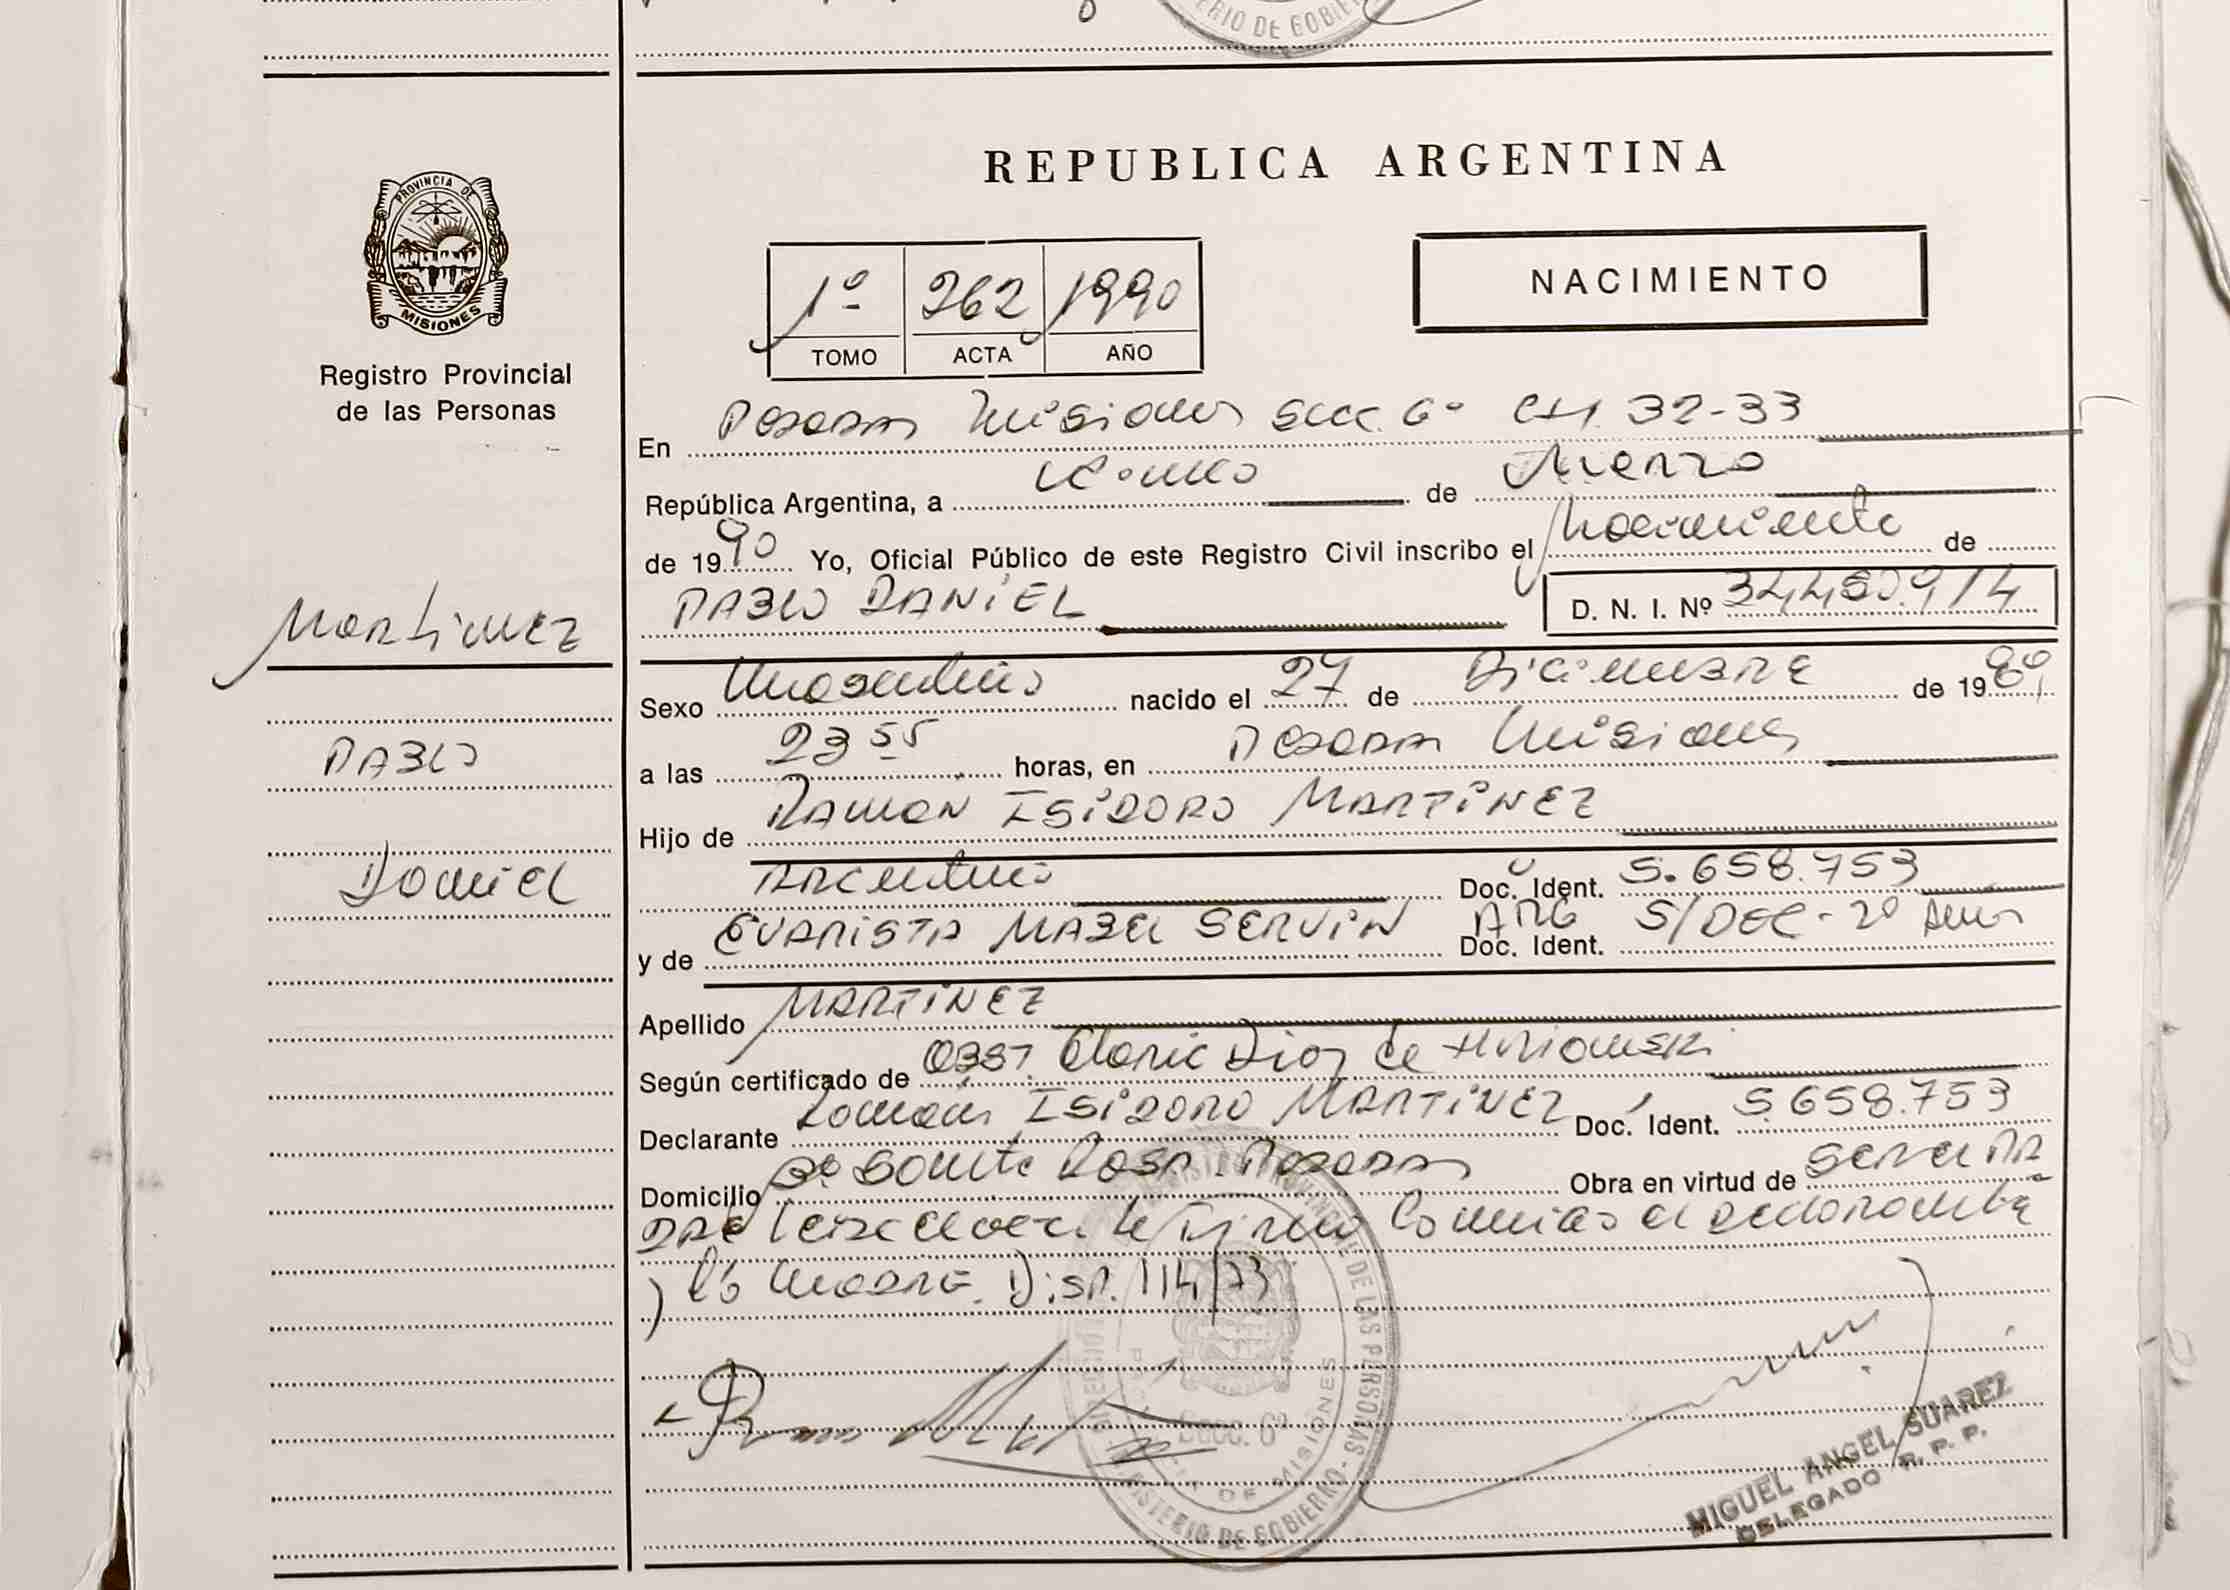 ERIO DE GOBIE
PROVINCIA DE
MISIONES
Registro Provincial
de las Personas
REPUBLICA ARGENTINA
1º 262 1990
TOMO ACTA AÑO
NACIMIENTO
En Posadas Misiones Secc. 6º CH. 32-33
República Argentina, a de Marzo
de 1990 Yo, Oficial Público de este Registro Civil inscribo el Nacimiento de
PABLO DANIEL D. N. I. Nº
Martinez
Sexo Masculino nacido el 27 de Diciembre de 1989
a las 23 55 horas, en Posadas Misiones
Pablo
Hijo de RAMON ISIDORO MARTINEZ
Argentino Doc. Ident. 5.658.753
Daniel
y de EVARISTA MABEL SERVIN ARG Doc. Ident. S/DEC-20 Años
Apellido MARTINEZ
Según certificado de OBST. Diaz de
Declarante Ramón ISIDORO MARTINEZ Doc. Ident. 5.658.753
Domicilio Bº Santa Rosa Posadas Obra en virtud de
el declarante
la Madre. Disp. 114/73
DIRECCIÓN REGISTRO PROVINCIAL DE LAS PERSONAS - MINISTERIO DE GOBIERNO
Secc. 6º
MISIONES
MIGUEL ANGEL SUAREZ
DELEGADO R. P. P.